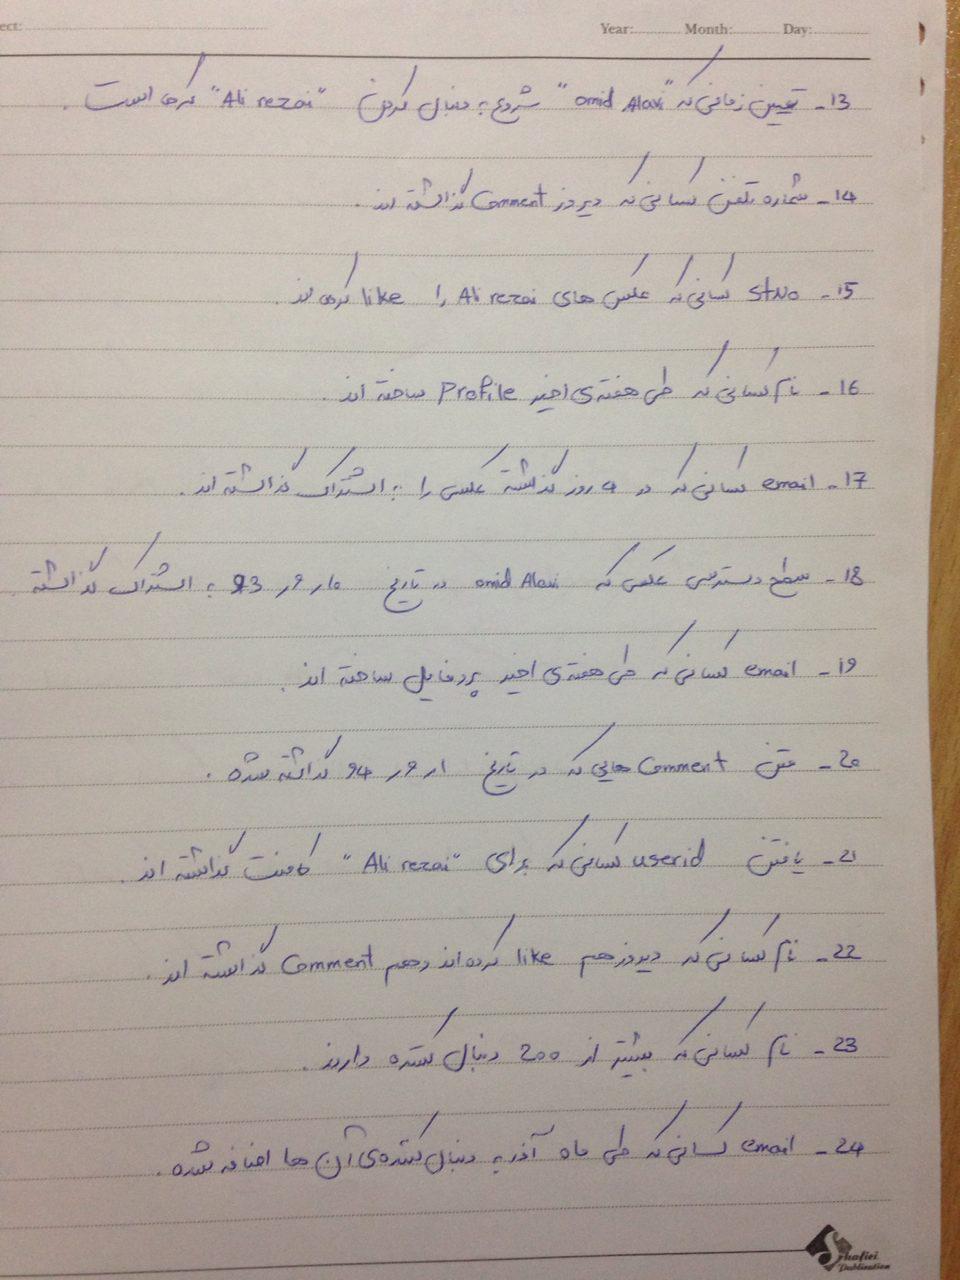 ect: Year: Month: Day:
13- تعیین زمانی که "omid Alavi" شروع به دنبال کردن "Ali rezai" کرده است.
14- شماره تلفن کسانی که دیروز Comment گذاشته اند.
15- stno کسانی که عکس های Ali rezai را like کرده اند.
16- نام کسانی که طی هفته ی اخیر Profile ساخته اند.
17- email کسانی که در ۴ روز گذشته عکسی را به اشتراک گذاشته اند.
18- سطح دسترسی عکسی که omid Alavi در تاریخ 93/9/10 به اشتراک گذاشته.
19- email کسانی که طی هفته ی اخیر پروفایل ساخته اند.
20- متن Comment هایی که در تاریخ 94/9/1 گذاشته شده.
21- یافتن userid کسانی که برای "Ali rezai" کامنت گذاشته اند.
22- نام کسانی که دیروز هم like کرده اند و هم Comment گذاشته اند.
23- نام کسانی که بیشتر از 200 دنبال کننده دارند.
24- email کسانی که طی ماه آذر به دنبال کننده ی آن ها اضافه شده.
Shafiei
Publication